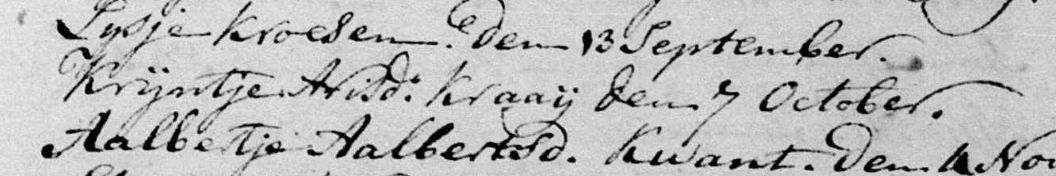 Lysje Kroesen. den 13 September.
Krijntje Arisd: Kraaij den 7 October.
Aalbertje Aalbertsd. Kwant. den 4 Nov